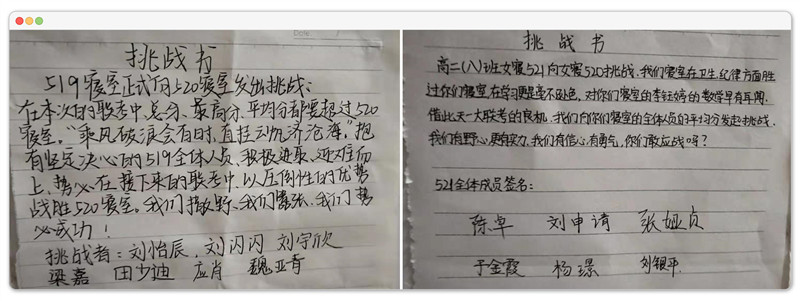 挑战书
519寝室正式向520寝室发出挑战:
在本次的联考中,总分、最高分、平均分都要超过520
寝室。“乘风破浪会有时,直挂云帆济沧海”,抱
有坚定决心的519全体人员,积极进取、迎难而
上,势必在接下来的联考中,以压倒性的优势
战胜520寝室。我们撒野、我们嚣张、我们势
必成功!
挑战者:刘怡辰、刘闪闪 刘宇欣
梁嘉 田少迪 应肖 魏亚青
挑战书
高二(八)班女寝521向女寝520挑战.我们寝室在卫生,纪律方面胜
过你们寝室,在学习更是毫不逊色,对你们寝室的李钰婷的数学早有耳闻.
借此天一大联考的良机.我们向你们寝室的全体人员的平均分发起挑战.
我们有野心更有实力.我们有信心有勇气,你们敢应战吗?
521全体成员签名:
陈卓 刘申请 张娅贞
于金霞 杨璟 刘银平